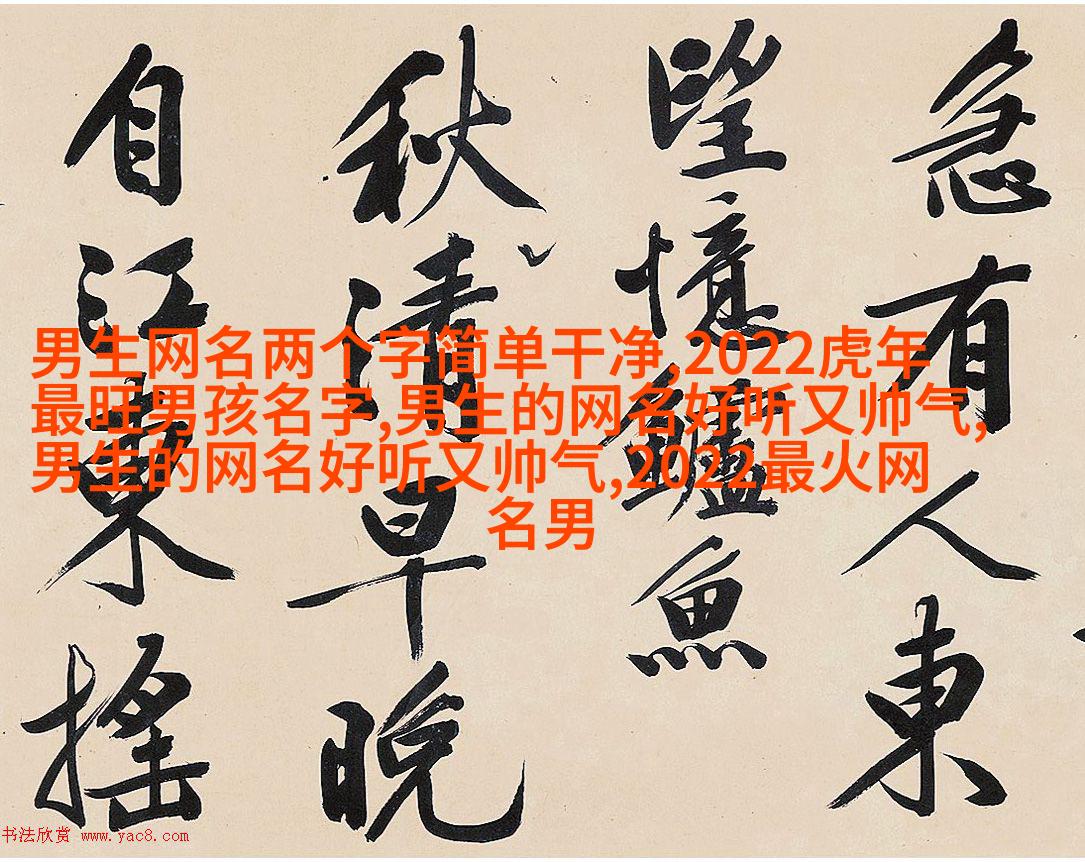 急有人東
望憶鱸魚
秋清早晚
自江東搖
男生网名两个字简单干净,2022虎年
最旺男孩名字,男生的网名好听又帅气,
男生的网名好听又帅气,2022最火网
名男
书法欣赏 www.yac8.com